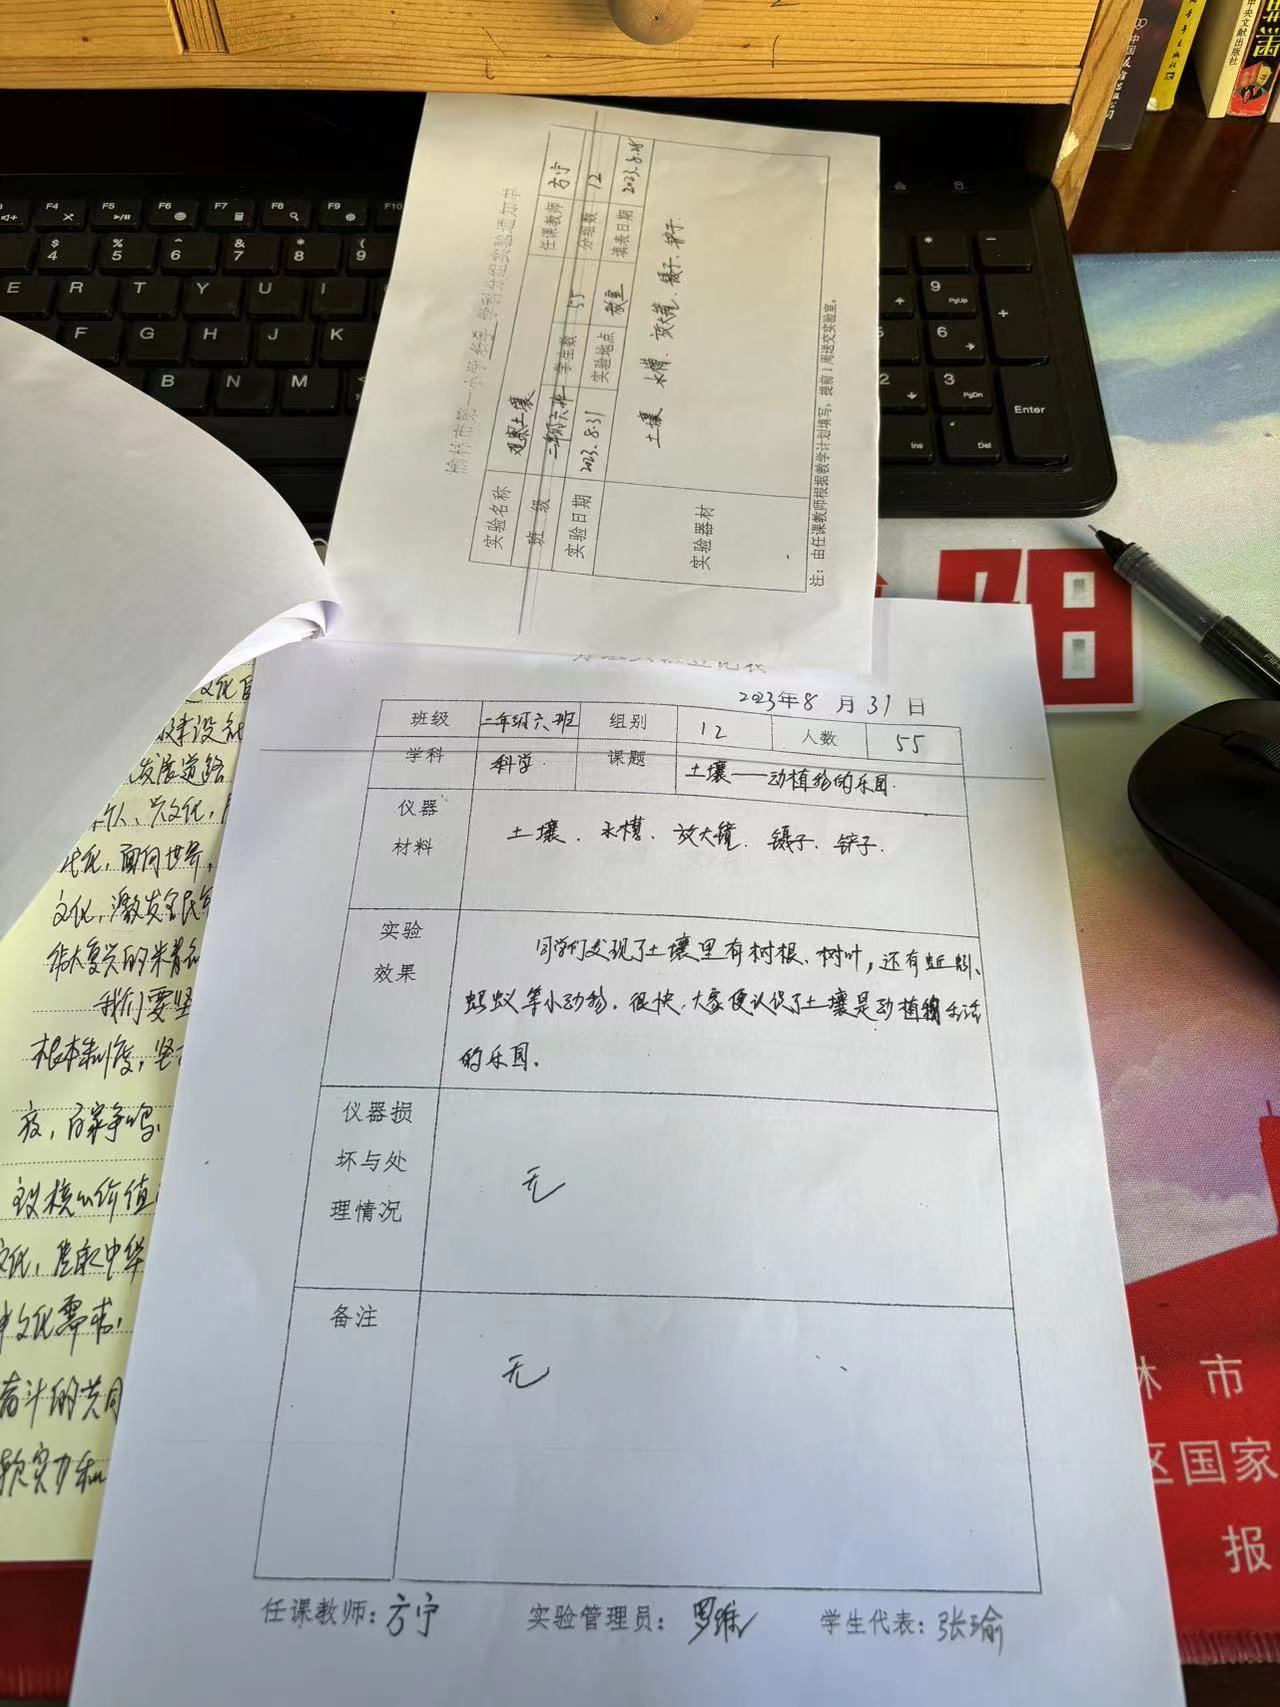 榆林市第一小学科学学科分组实验通知单
实验名称 观察土壤 任课教师 方宁
班 级 二年级六班 学生数 55 分组数 12
实验日期 2023.8.31 实验地点 教室 填表日期 2023.8.25
实验器材 土壤 水槽、放大镜、镊子、铲子.
注：由任课教师根据教学计划填写，提前1周送交实验室。
2023年8月31日
班级 二年级六班 组别 12 人数 55
学科 科学 课题 土壤——动植物的乐园.
仪器材料 土壤、水槽、放大镜、镊子、铲子.
实验效果 同学们发现了土壤里有树根、树叶，还有蚯蚓、
蚂蚁等小动物.很快,大家便认识了土壤是动植物生活
的乐园.
仪器损坏与处理情况 无
备注 无
任课教师：方宁 实验管理员： 学生代表：张瑜
文化,激发全民
我们要坚
根本制度，坚
放，百家争鸣.
文化需求.
奋斗的共同
软实力和
F4 F5 F6 F7 F8 F9 F10
$ 4 % 5 ^ 6 & 7 * 8 ( 9
E R T Y U I
F G H J K
B N M
* -
9 PgUp +
5 6
2 3 PgDn Enter
Ins . Del
中央文献出版社
阳
林 市
区国家
报